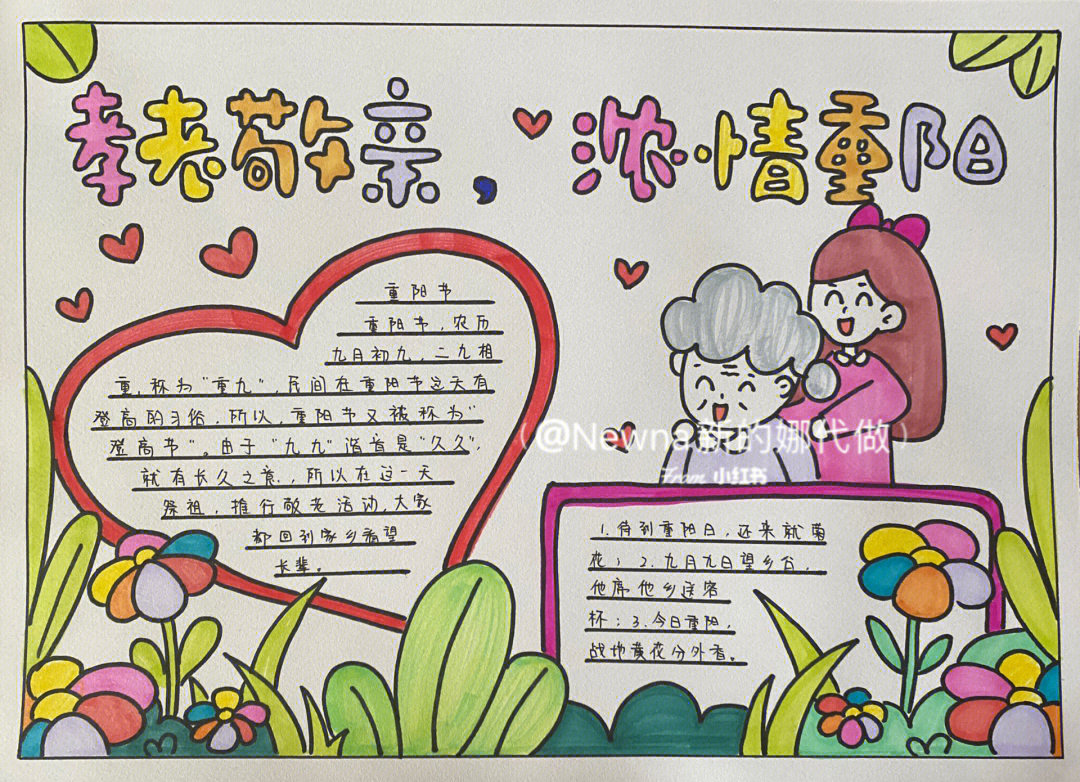 孝老敬亲，浓情重阳
重阳节
重阳节，农历
九月初九，二九相
重，称为"重九"，民间在重阳节这天有
登高的习俗，所以，重阳节又被称为"
登高节"。由于"九九"谐音是"久久"，
就有长久之意，所以在这一天
祭祖，推行敬老活动，大家
都回到家乡看望
长辈。
(@Newna新的娜代做)
From 小红书
1.待到重阳日，还来就菊
花；2.九月九日望乡台，
他席他乡送客
杯；3.今日重阳，
战地黄花分外香。